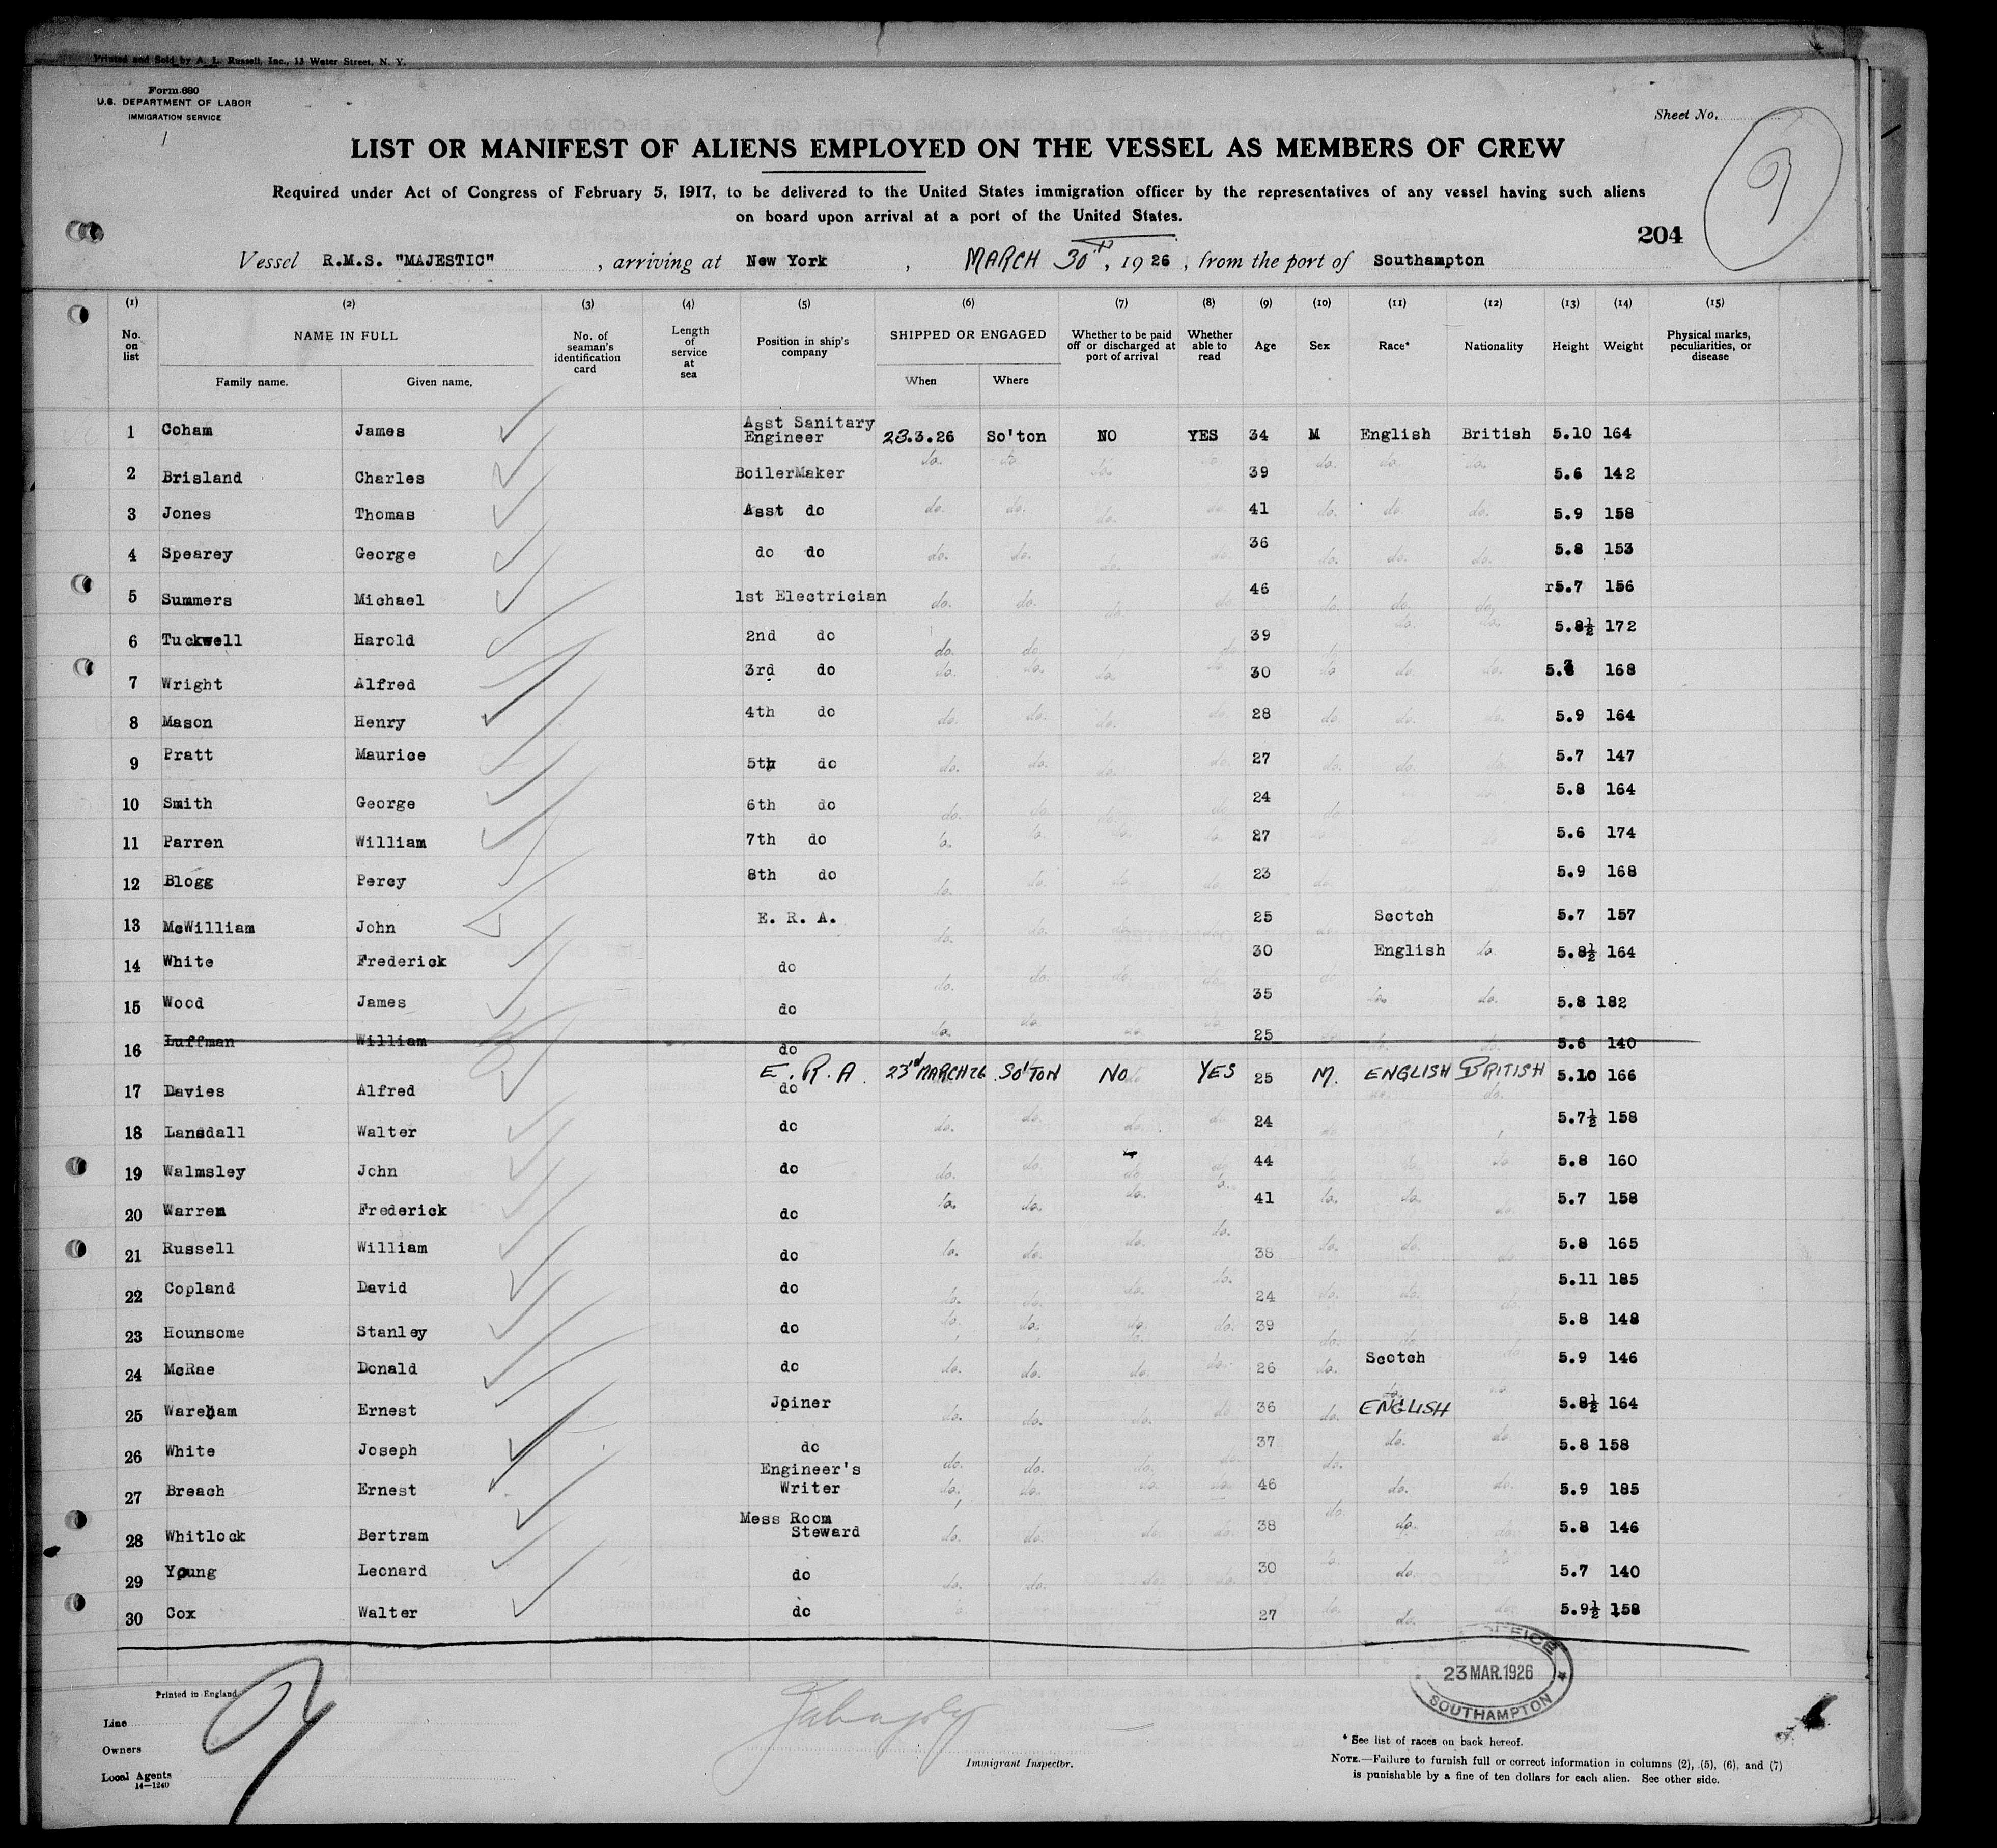 Printed and Sold by A. L. Russell, Inc., 13 Water Street, N. Y.
Form 680
U.S. DEPARTMENT OF LABOR
IMMIGRATION SERVICE
Sheet No. 9
LIST OR MANIFEST OF ALIENS EMPLOYED ON THE VESSEL AS MEMBERS OF CREW
Required under Act of Congress of February 5, 1917, to be delivered to the United States immigration officer by the representatives of any vessel having such aliens
on board upon arrival at a port of the United States.
204
Vessel R.M.S. "MAJESTIC", arriving at New York, MARCH 30th, 1926, from the port of Southampton
(1) (2) (3) (4) (5) (6) (7) (8) (9) (10) (11) (12) (13) (14) (15)
No. on list NAME IN FULL Family name. Given name. No. of seaman's identification card Length of service at sea Position in ship's company SHIPPED OR ENGAGED When Where Whether to be paid off or discharged at port of arrival Whether able to read Age Sex Race* Nationality Height Weight Physical marks, peculiarities, or disease
1 Coham James Asst Sanitary Engineer 23.3.26 So'ton NO YES 34 M English British 5.10 164
2 Brisland Charles BoilerMaker do. do do. do 39 do. do. do. 5.6 142
3 Jones Thomas Asst do do. do. do. do. 41 do. do. do. 5.9 158
4 Spearey George do do do. do. do. do. 36 do. do. do. 5.8 153
5 Summers Michael 1st Electrician do. do. do. do. 46 do. do. do. r5.7 156
6 Tuckwell Harold 2nd do do. do. do. 39 do. do. do. 5.8½ 172
7 Wright Alfred 3rd do do. do. do. do. 30 do do. do. 168
8 Mason Henry 4th do do. do. do. do. 28 do. do. do. 5.9 164
9 Pratt Maurice 5th do do. do. do. do. 27 do. do. do. 5.7 147
10 Smith George 6th do do. do. do. do. 24 do. 5.8 164
11 Parren William 7th do do. do. do. do. 27 5.6 174
12 Blogg Percy 8th do do. do. do. do. 23 do. 5.9 168
13 McWilliam John E. R. A. do. do. do. do. 25 Scotch 5.7 157
14 White Frederick do do. do. do. 30 English do. 5.8½ 164
15 Wood James do 35 do. do. 5.8 182
16 Luffman William do do. do. do. do. 25 do. do. 5.6 140
E. R. A. 23rd MARCH 26 SO'TON NO YES M. ENGLISH BRITISH
17 Davies Alfred do 25 5.10 166
18 Lansdall Walter do do. do. do. do. 24 do 5.7½ 158
19 Walmsley John do do. do. do. do. 44 do. do 5.8 160
20 Warren Frederick do do. do. do. do. 41 do. do. do. 5.7 158
21 Russell William do do. do. do. do. 38 do. do. do. 5.8 165
22 Copland David do do. do. do. do. 24 do. do. do. 5.11 185
23 Hounsome Stanley do do. do. do. do. 39 do. do. 5.8 148
24 McRae Donald do do. do. do. do. 26 do. Scotch do. 5.9 146
25 Wareham Ernest Joiner do. do. do. do. 36 do. ENGLISH do 5.8½ 164
26 White Joseph do do. do. do. do. 37 do. do. do. 5.8 158
27 Breach Ernest Engineer's Writer do. do. do. do. 46 do. do. 5.9 185
28 Whitlock Bertram Mess Room Steward do. do. do. do. 38 do. do. do. 5.8 146
29 Young Leonard do do. do. do. do. 30 do. do. do. 5.7 140
30 Cox Walter do 27 do. do. do. 5.9½ 158
OFFICE
23 MAR.1926
SOUTHAMPTON
Printed in England
Line
Owners
Local Agents
14—1240
Immigrant Inspector.
* See list of races on back hereof.
NOTE.—Failure to furnish full or correct information in columns (2), (5), (6), and (7)
is punishable by a fine of ten dollars for each alien. See other side.